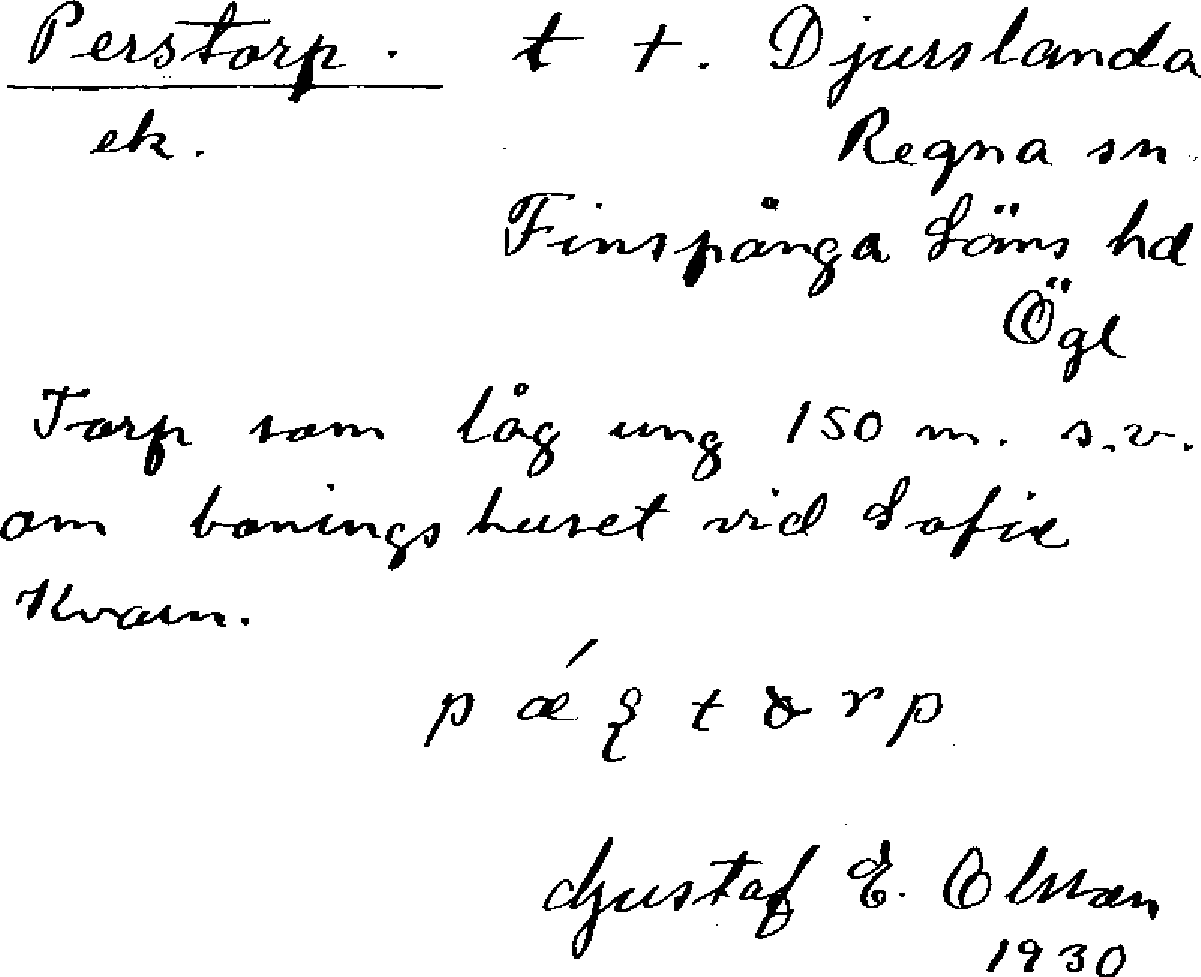 Perstorp. t t. Djurslanda
ek. Regna sn.
Finspånga Läns hd
Ögl
Torp som låg ung 150 m. s.v.
om boningshuset vid Sofie
Kvarn.
p ǽ t r p
Gustaf E. Olsson
1930